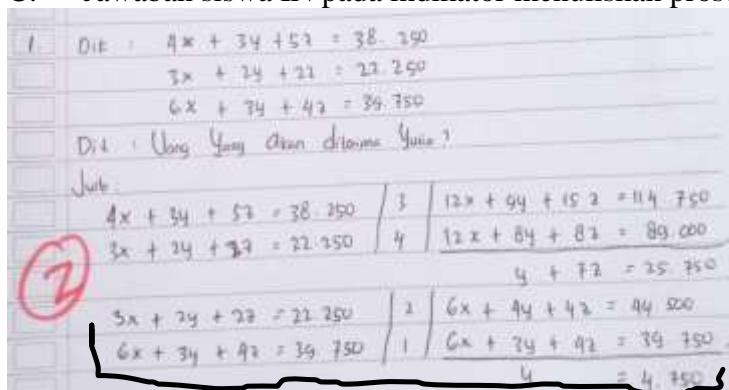 1. Dik : 4x + 3y + 5z = 38.250
3x + 2y + 2z = 22.250
6x + 3y + 4z = 39.750
Dit : Uang Yang akan diterima Yunia?
Jwb :
4x + 3y + 5z = 38.250 | 3 | 12x + 9y + 15z = 114.750
3x + 2y + 2z = 22.250 | 4 | 12x + 8y + 8z = 89.000
y + 7z = 25.750
2
3x + 2y + 2z = 22.250 | 2 | 6x + 4y + 4z = 44.500
6x + 3y + 4z = 39.750 | 1 | 6x + 3y + 4z = 39.750
y = 4.750